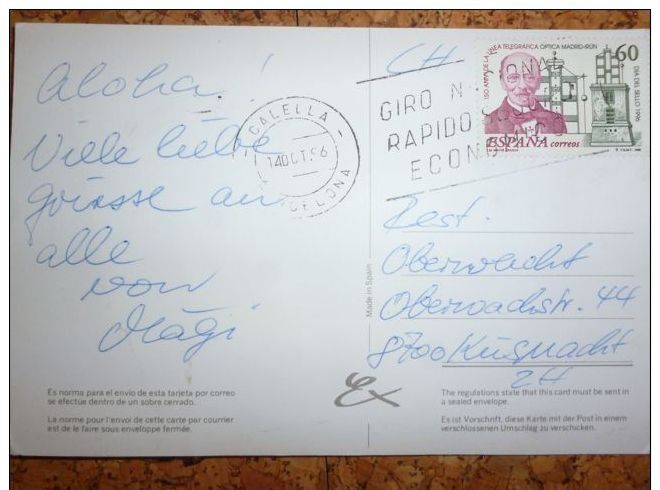 Aloha!
Viele liebe
Grüsse an
alle
von
Mägi
CALELLA -
14 OCT. 96
BARCELONA
CH
GIRO NACIONAL
RAPIDO
ECON
150 ANIV. DE LA LINEA TELEGRAFICA OPTICA MADRID-IRUN
60
DIA DEL SELLO 1996
ESPAÑA correos
Rest.
Oberwacht
Oberwachtstr. 44
8700 Küsnacht
ZH
Made in Spain
Es norma para el envio de esta tarjeta por correo
se efectúe dentro de un sobre cerrado.
La norme pour l'envoi de cette carte par courrier
est de le faire sous enveloppe fermée.
The regulations state that this card must be sent in
a sealed envelope.
Es ist Vorschrift, diese Karte mit der Post in einem
verschlossenen Umschlag zu verschicken.